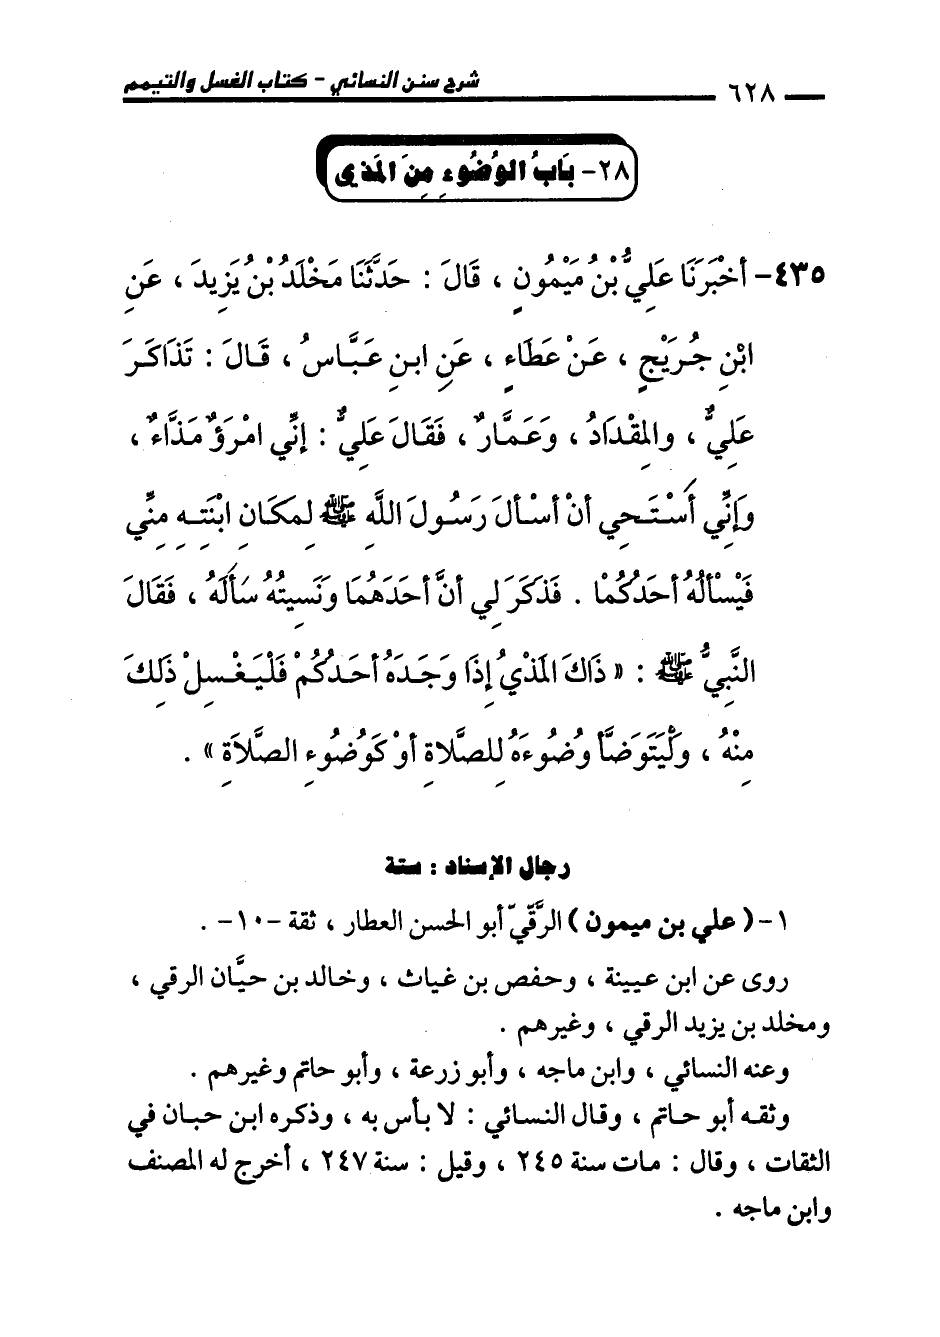 شرح سنن النسائي - كتاب الغسل والتيمم
٦٢٨
٢٨- بَابُ الوُضُوءِ مِنَ المَذي
٤٣٥- أخْبَرَنَا عَلِيُّ بْنُ مَيْمُونٍ ، قَالَ : حَدَّثَنَا مَخْلَدُ بْنُ يَزِيدَ ، عَنِ
ابْنِ جُرَيْجٍ ، عَنْ عَطَاءٍ ، عَنِ ابنِ عَبَّاسُ ، قَالَ : تَذَاكَرَ
عَلِيٌّ ، والمِقْدَادُ ، وَعَمَّارٌ ، فَقَالَ عَلِيٌّ : إنِّي امْرَؤٌ مَذَّاءٌ ،
وَإنِّي أَسْتَحِي أنْ أسْألَ رَسُولَ اللَّهِ ﷺ لِمكَانِ ابْنَتِهِ مِنِّي
فَيْسْألُهُ أحَدُكُمَا . فَذَكَرَ لِي أنَّ أحَدَهُمَا وَنَسِيتُهُ سَألَهُ ، فَقَالَ
النَّبِيُّ ﷺ : « ذَاكَ المَذيُ إذَا وَجَدَهُ أحَدُكُمْ فَلْيَغْسِلْ ذَلِكَ
مِنْهُ ، وَلْيَتَوَضَّأ وُضُوءَهُ لِلصَّلاةِ أوْ كَوُضُوءِ الصَّلاَةِ » .
رجال الإسناد : ستة
١- ( علي بن ميمون ) الرَّقِّيّ أبو الحسن العطار ، ثقة -١٠- .
روى عن ابن عيينة ، وحفص بن غياث ، وخالد بن حيَّان الرقي ،
ومخلد بن يزيد الرقي ، وغيرهم .
وعنه النسائي ، وابن ماجه ، وأبو زرعة ، وأبو حاتم وغيرهم .
وثقه أبو حاتم ، وقال النسائي : لا بأس به ، وذكره ابن حبان في
الثقات ، وقال : مات سنة ٢٤٥ ، وقيل : سنة ٢٤٧ ، أخرج له المصنف
وابن ماجه .